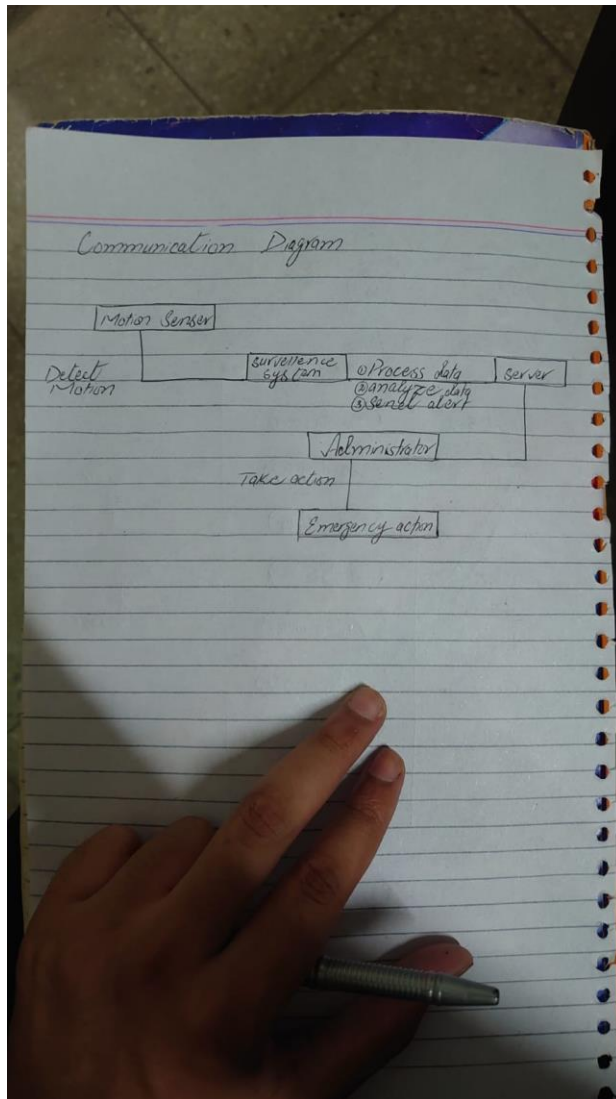 Communication Diagram
Motion Senser
Detect
Motion
Survellence
System
① Process data
② analyze data
③ Send alert
Server
Administrator
Take action
Emergency action